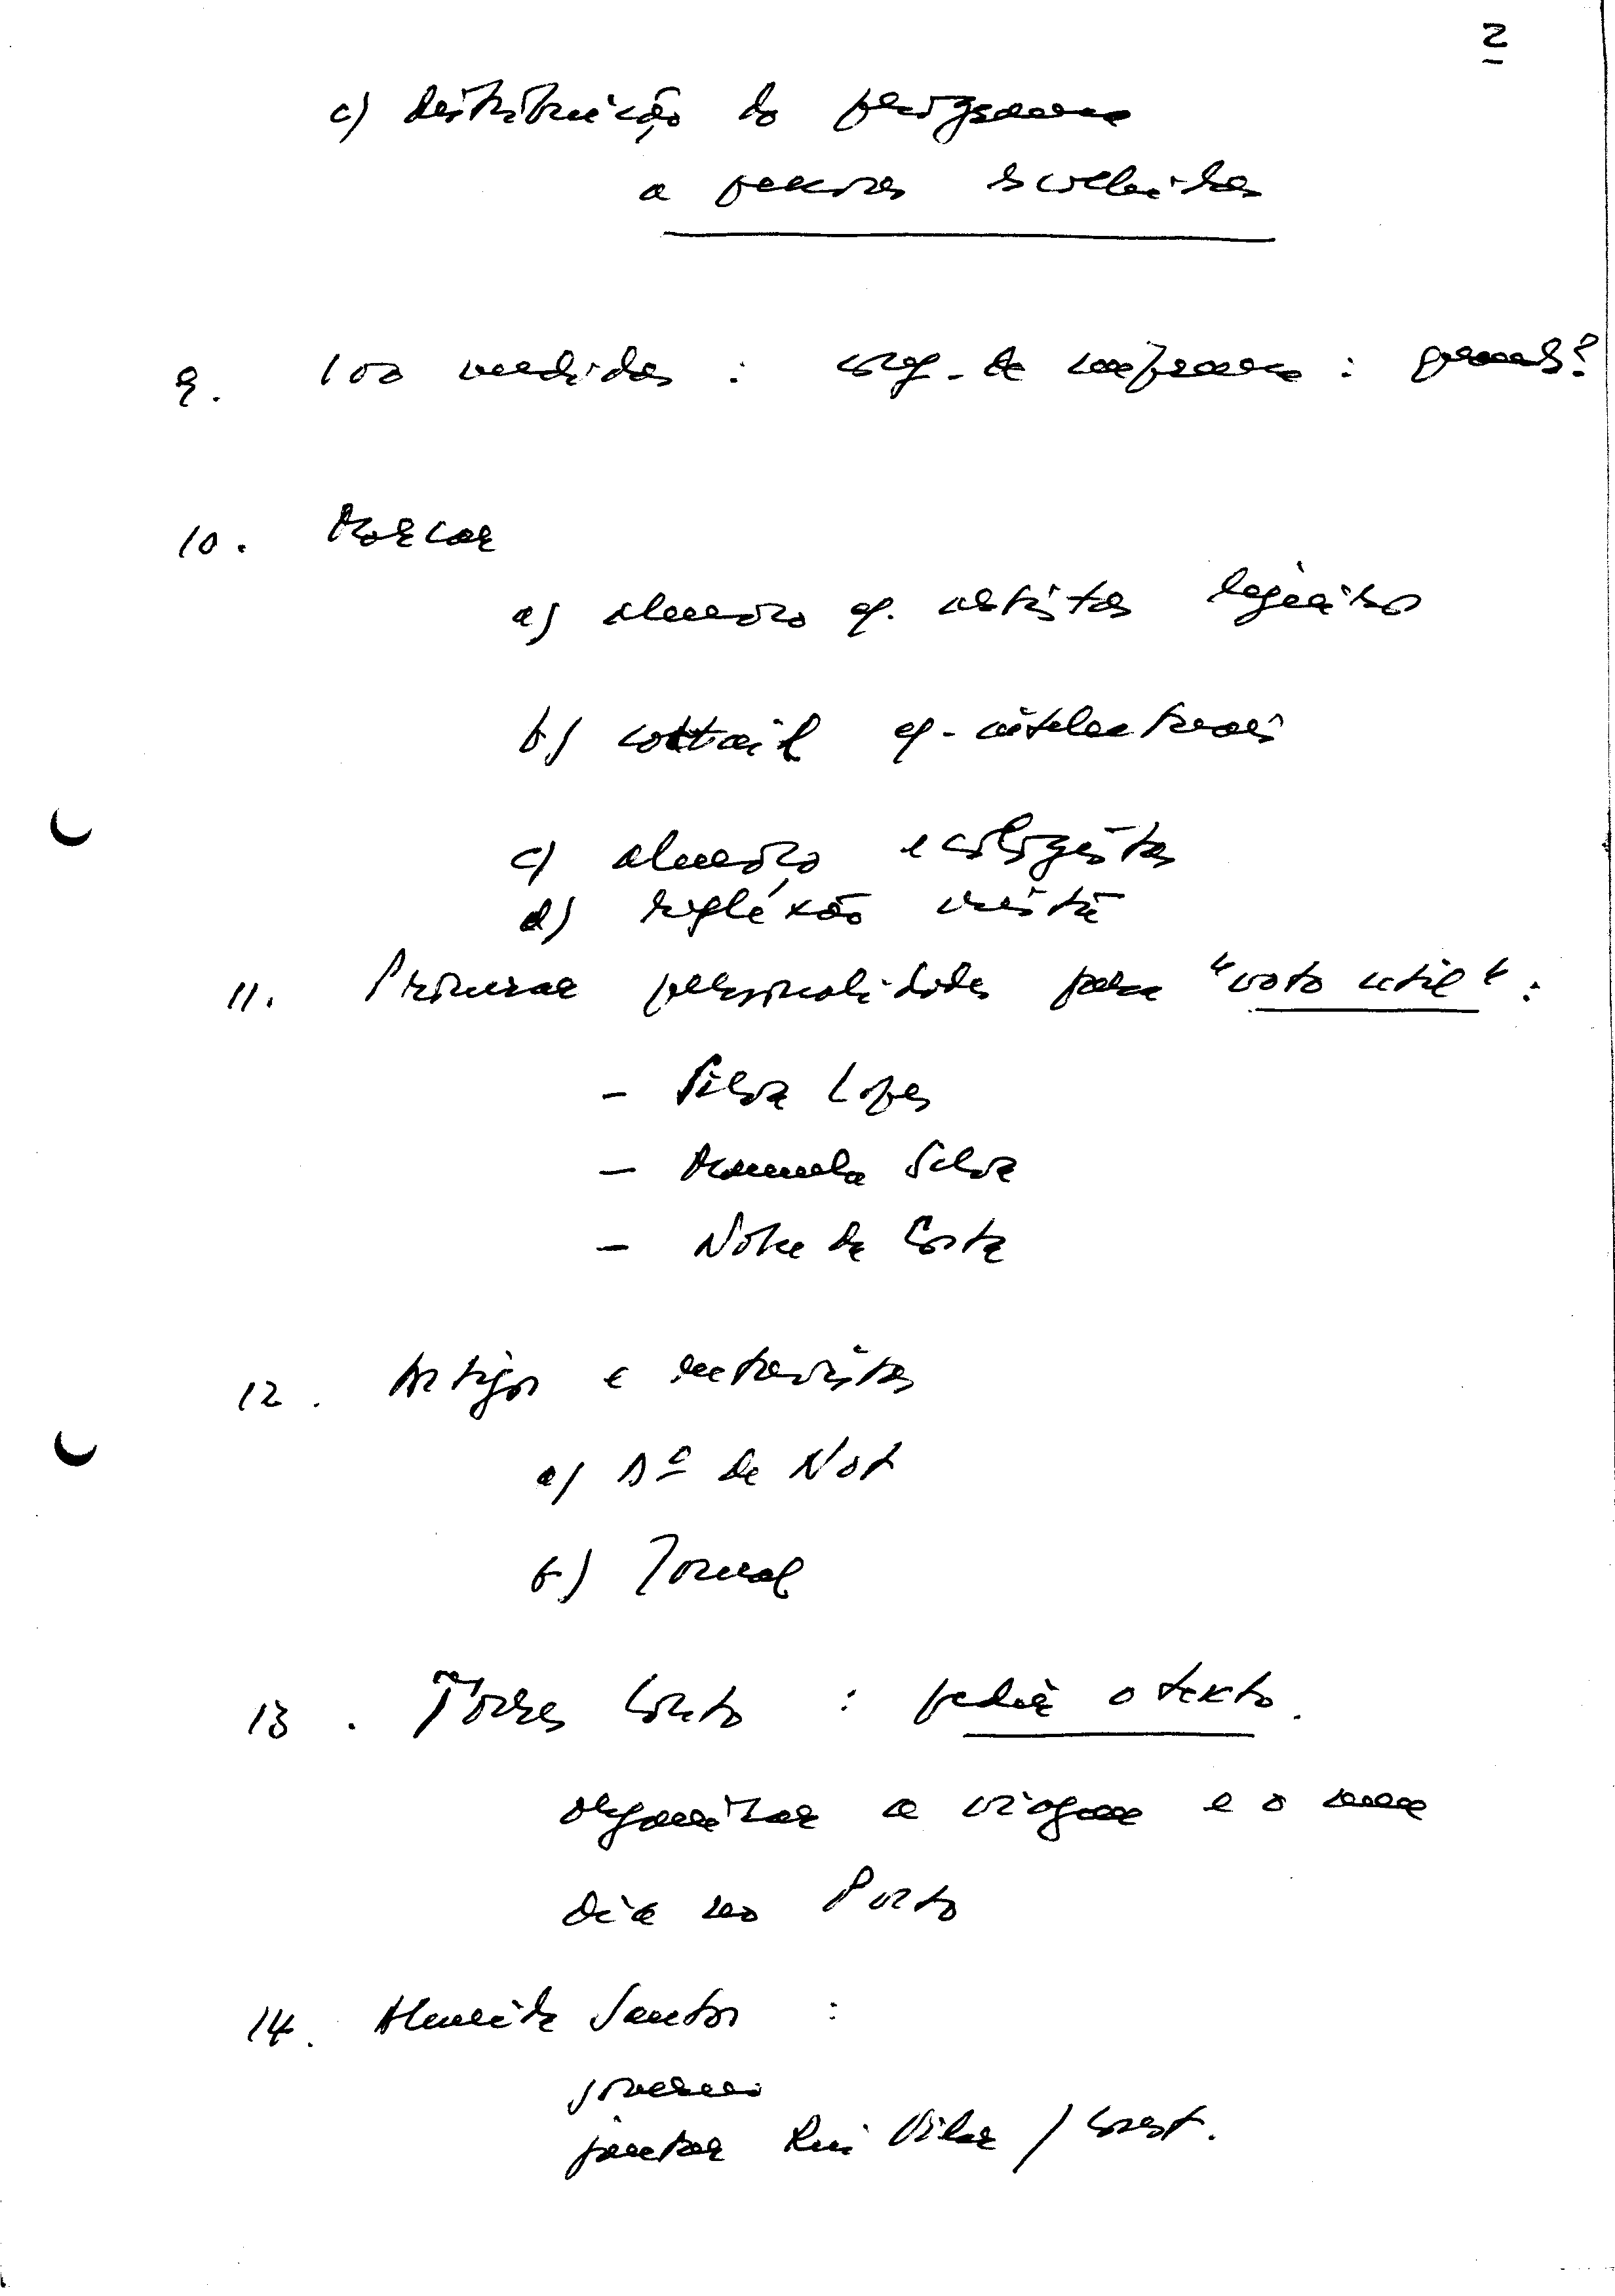 2
c) distribuição do programa
a pessoas escolhidas
9. 100 medidas : conf. de imprensa : quando?
10. Marcar
a) almoço c/. artistas
b) coktail c/. intelectuais
c) almoço ecologistas
d) reflexão
11. Procurar personalidades para "voto util" :
- Silva Lopes
- Manuela Silva
- Nobre da Costa
12. Artigos e entrevistas
a) Dº de Not
b) Jornal
13. Torres Couto : pedir o texto.
organizar a viagem e o
dia no Porto
14. Almeida Santos :
jantar Rui Vilar / Const.